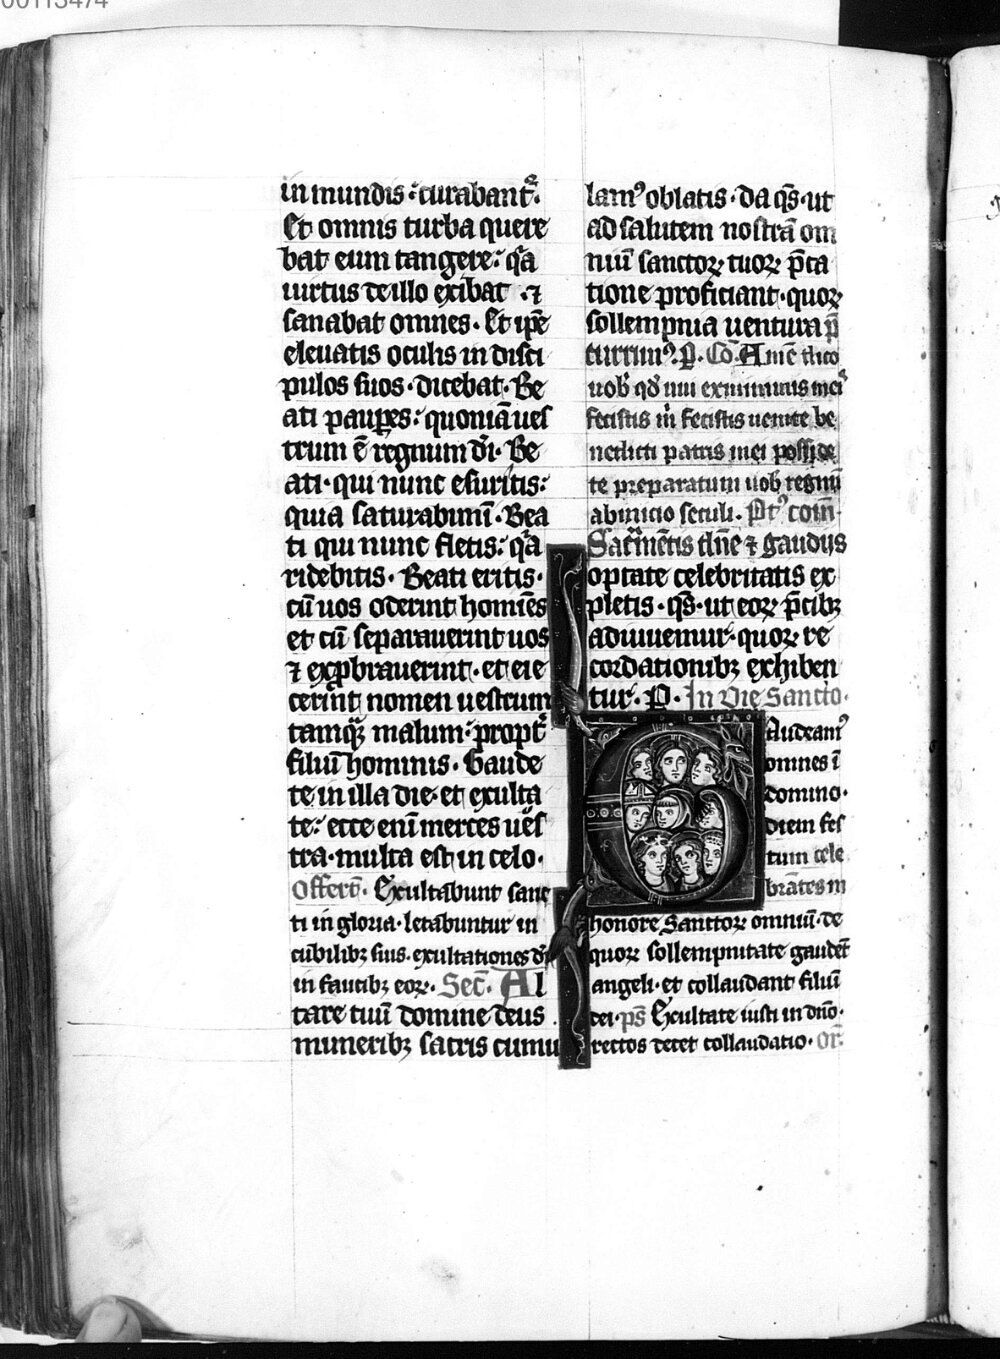 00113474
in mundis : curabantᷣ.
Et omnis turba quere
bat eum tangere : qͣa
uirtus de illo exibat . ⁊
sanabat omnes . Et ip̅e
eleuatis oculis in disci
pulos suos . dicebat . Be
ati paup̲es : quonia̅ ues
trum e̅ regnum di̅ . Be
ati . qui nunc esuritis :
quia saturabimi̅ . Bea
ti qui nunc fletis : qͣa
ridebitis . Beati eritis .
cu̅ uos oderint homi̅es
et cu̅ separauerint uos
⁊ exp̲brauerint . et eie
cerint nomen uestrum
tamqͣꝫ malum : propt̅
filiu̅ hominis . Gaude
te in illa die . et exulta
te : ecce eni̅ merces ues
tra . multa est in celo .
Offert̅ . Exultabunt sanc
ti in gloria . letabuntur in
cubilibꝫ suis . exultationes di̅
in faucibꝫ eoꝝ . Sec̅ . Al
tare tuu̅ domine deus
muneribꝫ sacris cumu
lamꝰ oblatis . da qs̅ . ut
ad salutem nostra̅ om
niu̅ sanctoꝝ tuoꝝ p̅ca
tione proficiant . quoꝝ
sollempnia uentura p̅
currimꝰ . P̲ . Co̅ . Ame̅ dico
uob̅ qd̅ uni ex minimis meis
fecistis m̅ fecistis uenite be
nedicti patris mei posside
te preparatum uob̅ regnu̅
ab inicio seculi . Ptꝰ com̅ .
Sacͣme̅tis dn̅e ⁊ gaudiis
optate celebritatis ex
pletis . qs̅ . ut eoꝝ p̅cibꝫ
adiuuemur . quoꝝ re
cordationibꝫ exhiben
tur . P̲ . In die Sancto .
Gaudeamꝰ
omnes i̅
domino .
diem fes
tum cele
brantes in
honore Sanctoꝝ omniu̅ . de
quoꝝ sollempnitate gaude̅t
angeli . et collaudant filiu̅
dei . ps̅ Exultate iusti in dn̅o .
rectos decet collaudatio . Or̅ .